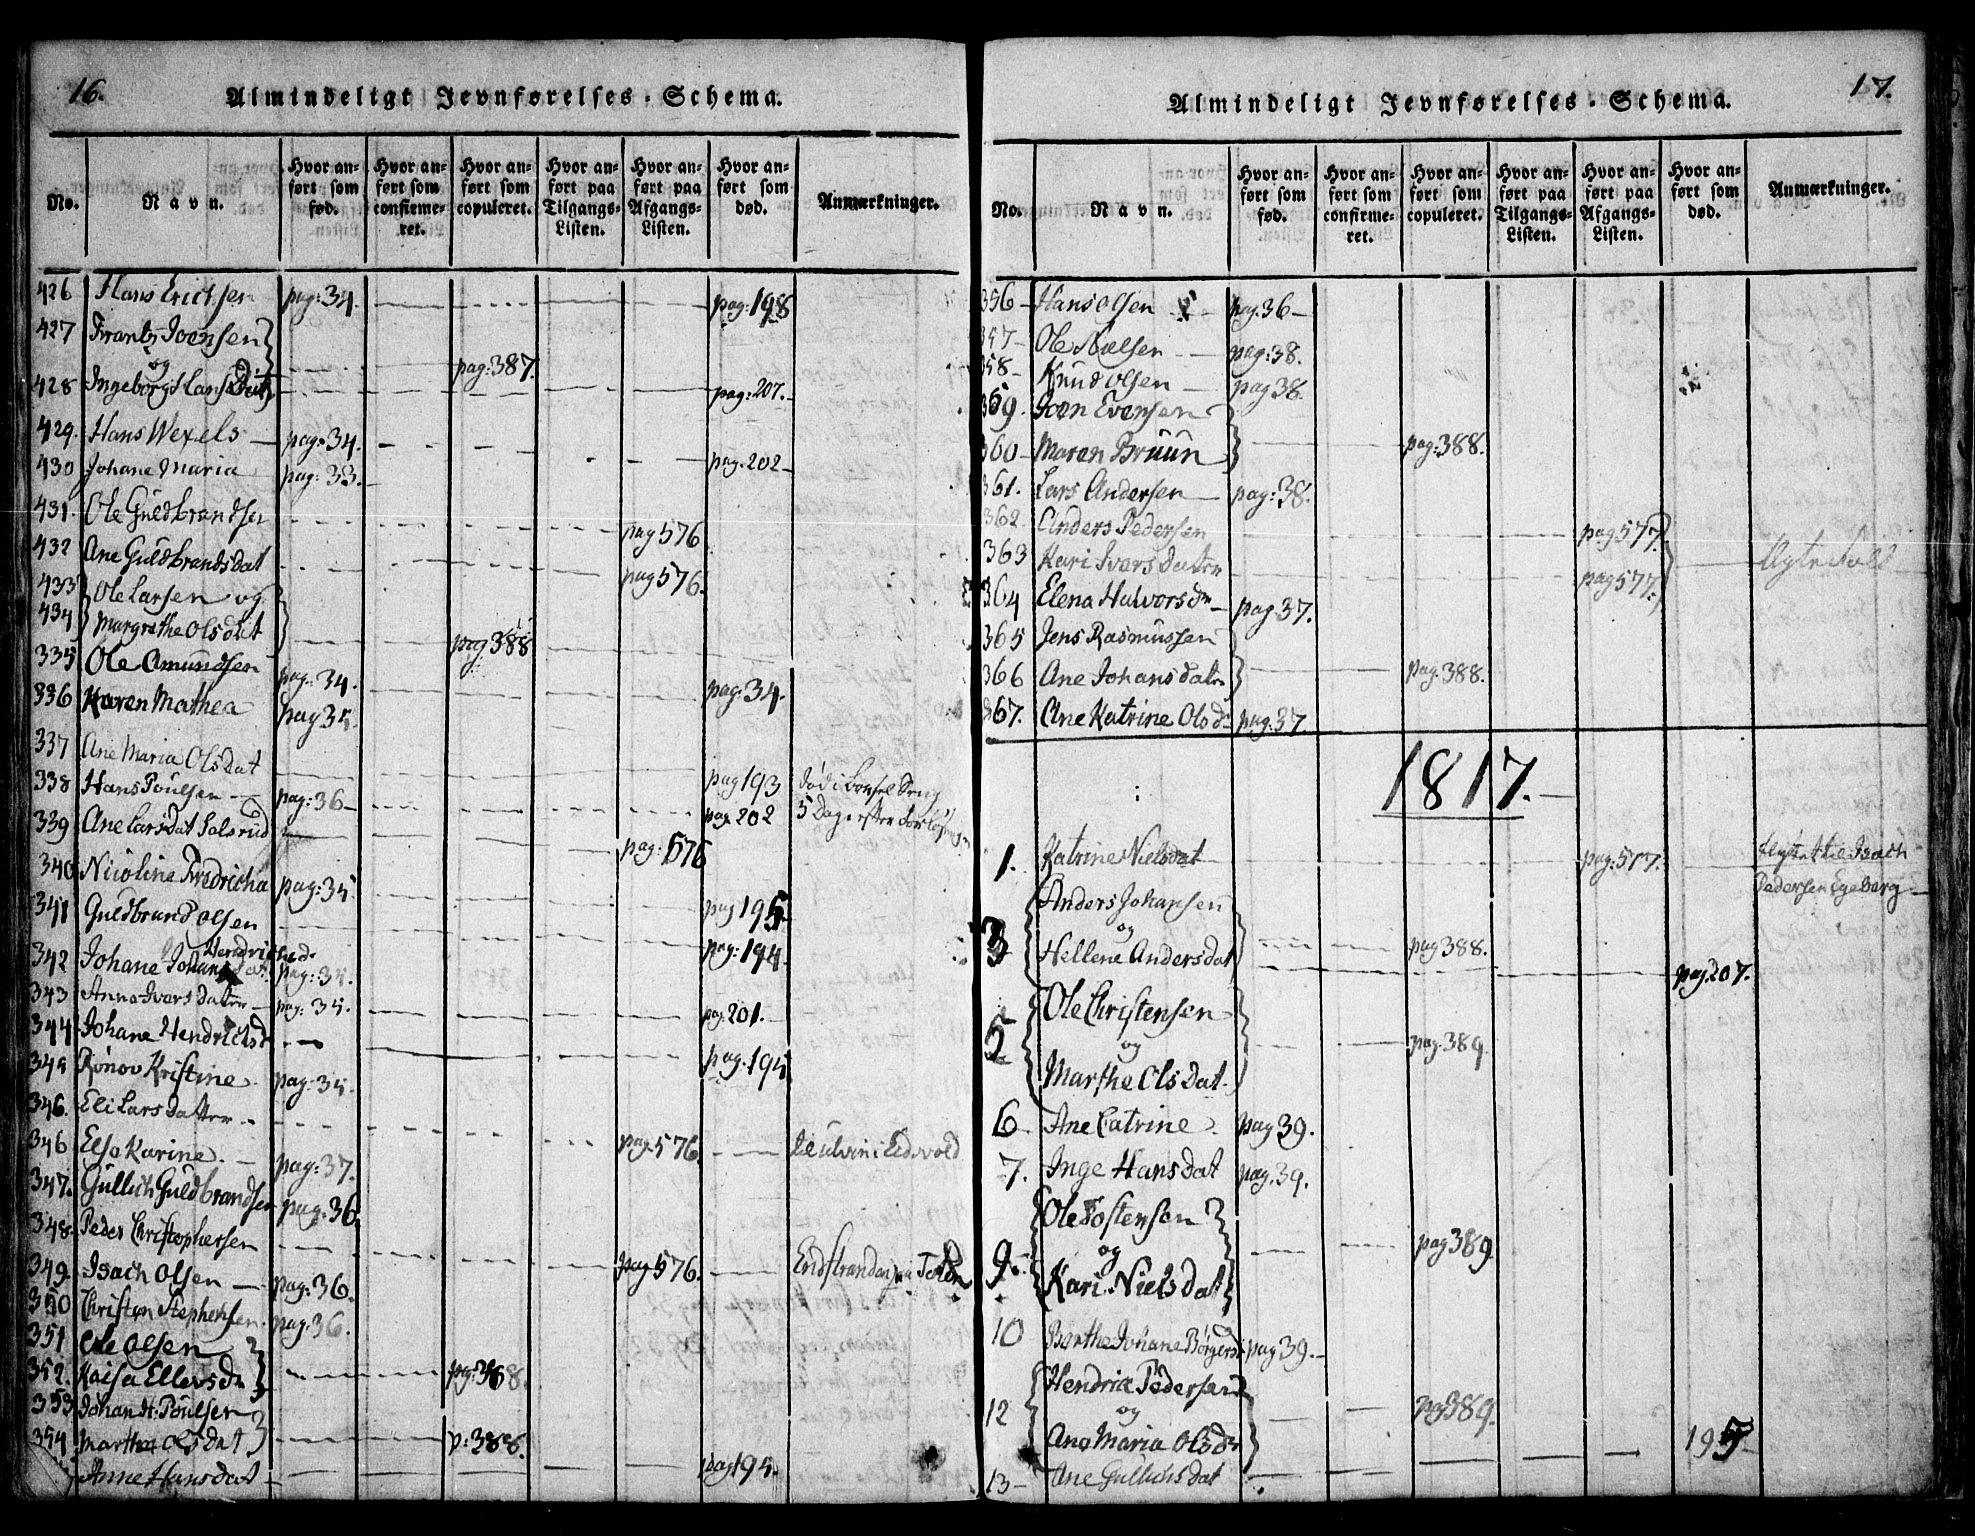 16.
Almindeligt Jevnførelses-Schema.
No.
Navn.
Hvor anført som fød.
Hvor anført som confirmeret.
Hvor anført som copuleret.
Hvor anført paa Tilgangs-Listen.
Hvor anført paa Afgangs-Listen.
Hvor anført som død.
Anmærkninger.
426 Hans Erichsen pag: 34. pag: 198
427 Frantz Joensen
og pag: 387.
428 Ingeborg pag: 207.
429. Hans Wexels pag: 34.
430 Johane Maria pag: 33. pag. 202
431. Ole Guldbrandsen pag 576
432 Ane Guldbrandsdat pag 576.
433 Ole Larsen og
434 Margrethe Olsdat pag 388
335 Ole Amundsen pag: 34. pag: 34.
336 Karen Mathea pag 35.
337 Ane Maria Olsdat pag 193 død i
338 Hans Poulsen pag: 36 pag. 202 5 Dag efter
339 Ane Larsdat Solsrud pag: 576
340 Nicoline Fredricha pag: 35
341 Guldbrand Olsen pag 195
342 Johane pag: 194
343 Anna Ivarsdatter pag: 35. pag. 201.
344 Johane Hendrichsd pag. 195
345 Rønov Kristine pag: 35.
346. Eli Larsdatter pag. 576. i Eidsvold
346 Elsa Karine pag: 37.
347. Gullich Guldbrandsen pag: 36
348. Peder Christophersen pag 576. paa Toten
349. Isach Olsen pag: 36.
350 Christen Stephensen pag: 36.
351 Ole Olsen
352. Kaisa Ellevsdr pag: 388.
353 Johan H: Poulsen
354 Marthe Olsdat p: 388.
Anne Hansdat pag 195.
17.
Almindeligt Jevnførelses-Schema.
No.
Navn.
Hvor anført som fød.
Hvor anført som confirmeret.
Hvor anført som copuleret.
Hvor anført paa Tilgangs-Listen.
Hvor anført paa Afgangs-Listen.
Hvor anført som død.
Anmærkninger.
356 Hans Olsen pag. 36
357 Ole Nielsen pag: 38.
358 Knud Olsen pag 38
359. Joen Evensen
360 Maren Bruun pag: 388.
361. Lars Andersen pag: 38.
362. Anders Pedersen pag 577.
363 Kari Ivarsdatter pag 577.
364 Elena Halvorsdr pag 37.
365 Jens Rasmussen
366 Ane Johansdatr pag. 388.
367. Ane Katrine Olsd pag. 37.
1817.
1. Katrine Nielsdat pag: 577. Isach
Pedersen Egeberg
Anders Johansen
3 og pag 388.
Hellene Andersdat pag. 207.
Ole Christensen
5 og pag. 389.
Marthe Olsdat.
6 Ane Catrine pag 39.
7. Inge Hansdat pag. 39.
Ole Tostensen
9. og pag 389.
Kari Nielsdat
10 Berthe Johane Børgersd pag 39.
Hendric Pedersen
12 og pag 389.
Ane Maria Olsdr 195
13 Ane Gullichsdat